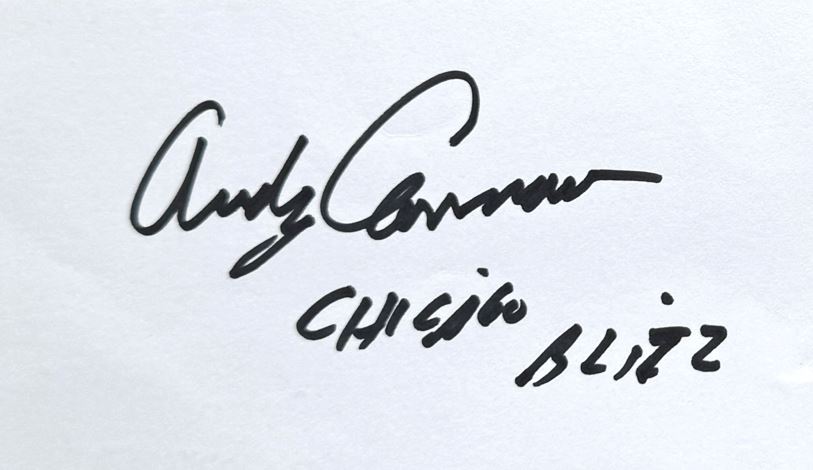 Andy Cannavino
CHICAGO BLITZ